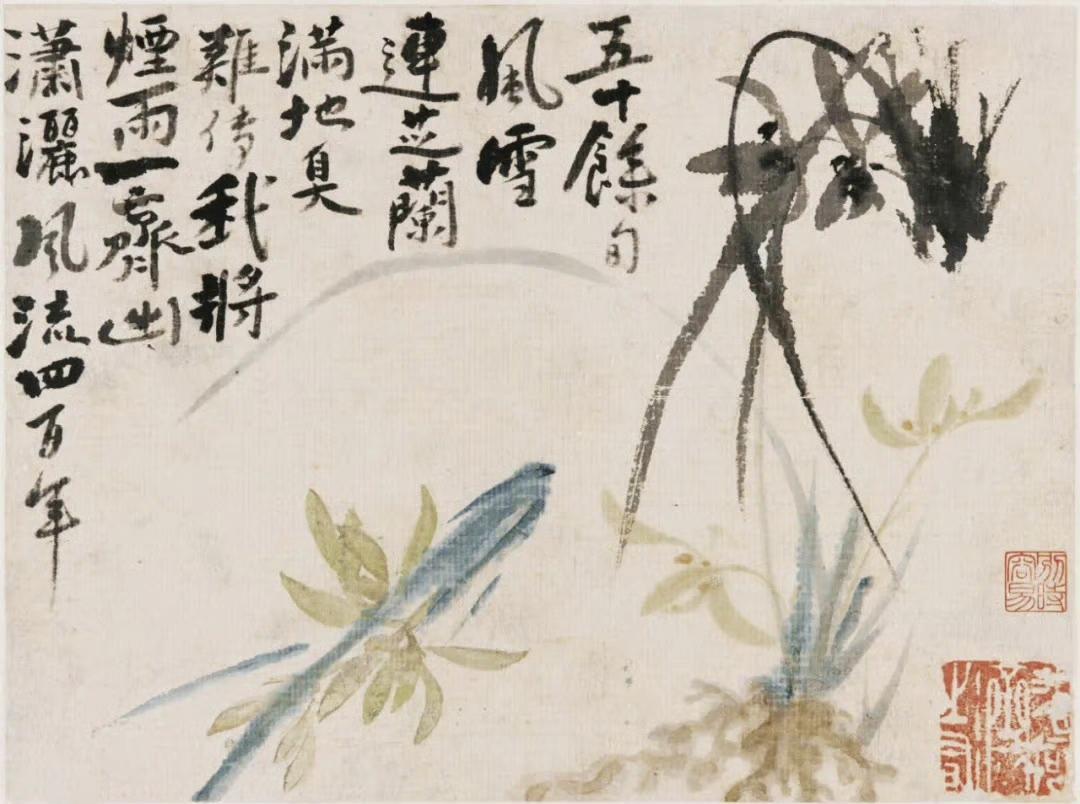 五十餘旬
風雪
連芝蘭
滿地臭
難傳我將
煙雨一齊出
瀟灑風流四百年
別時容易